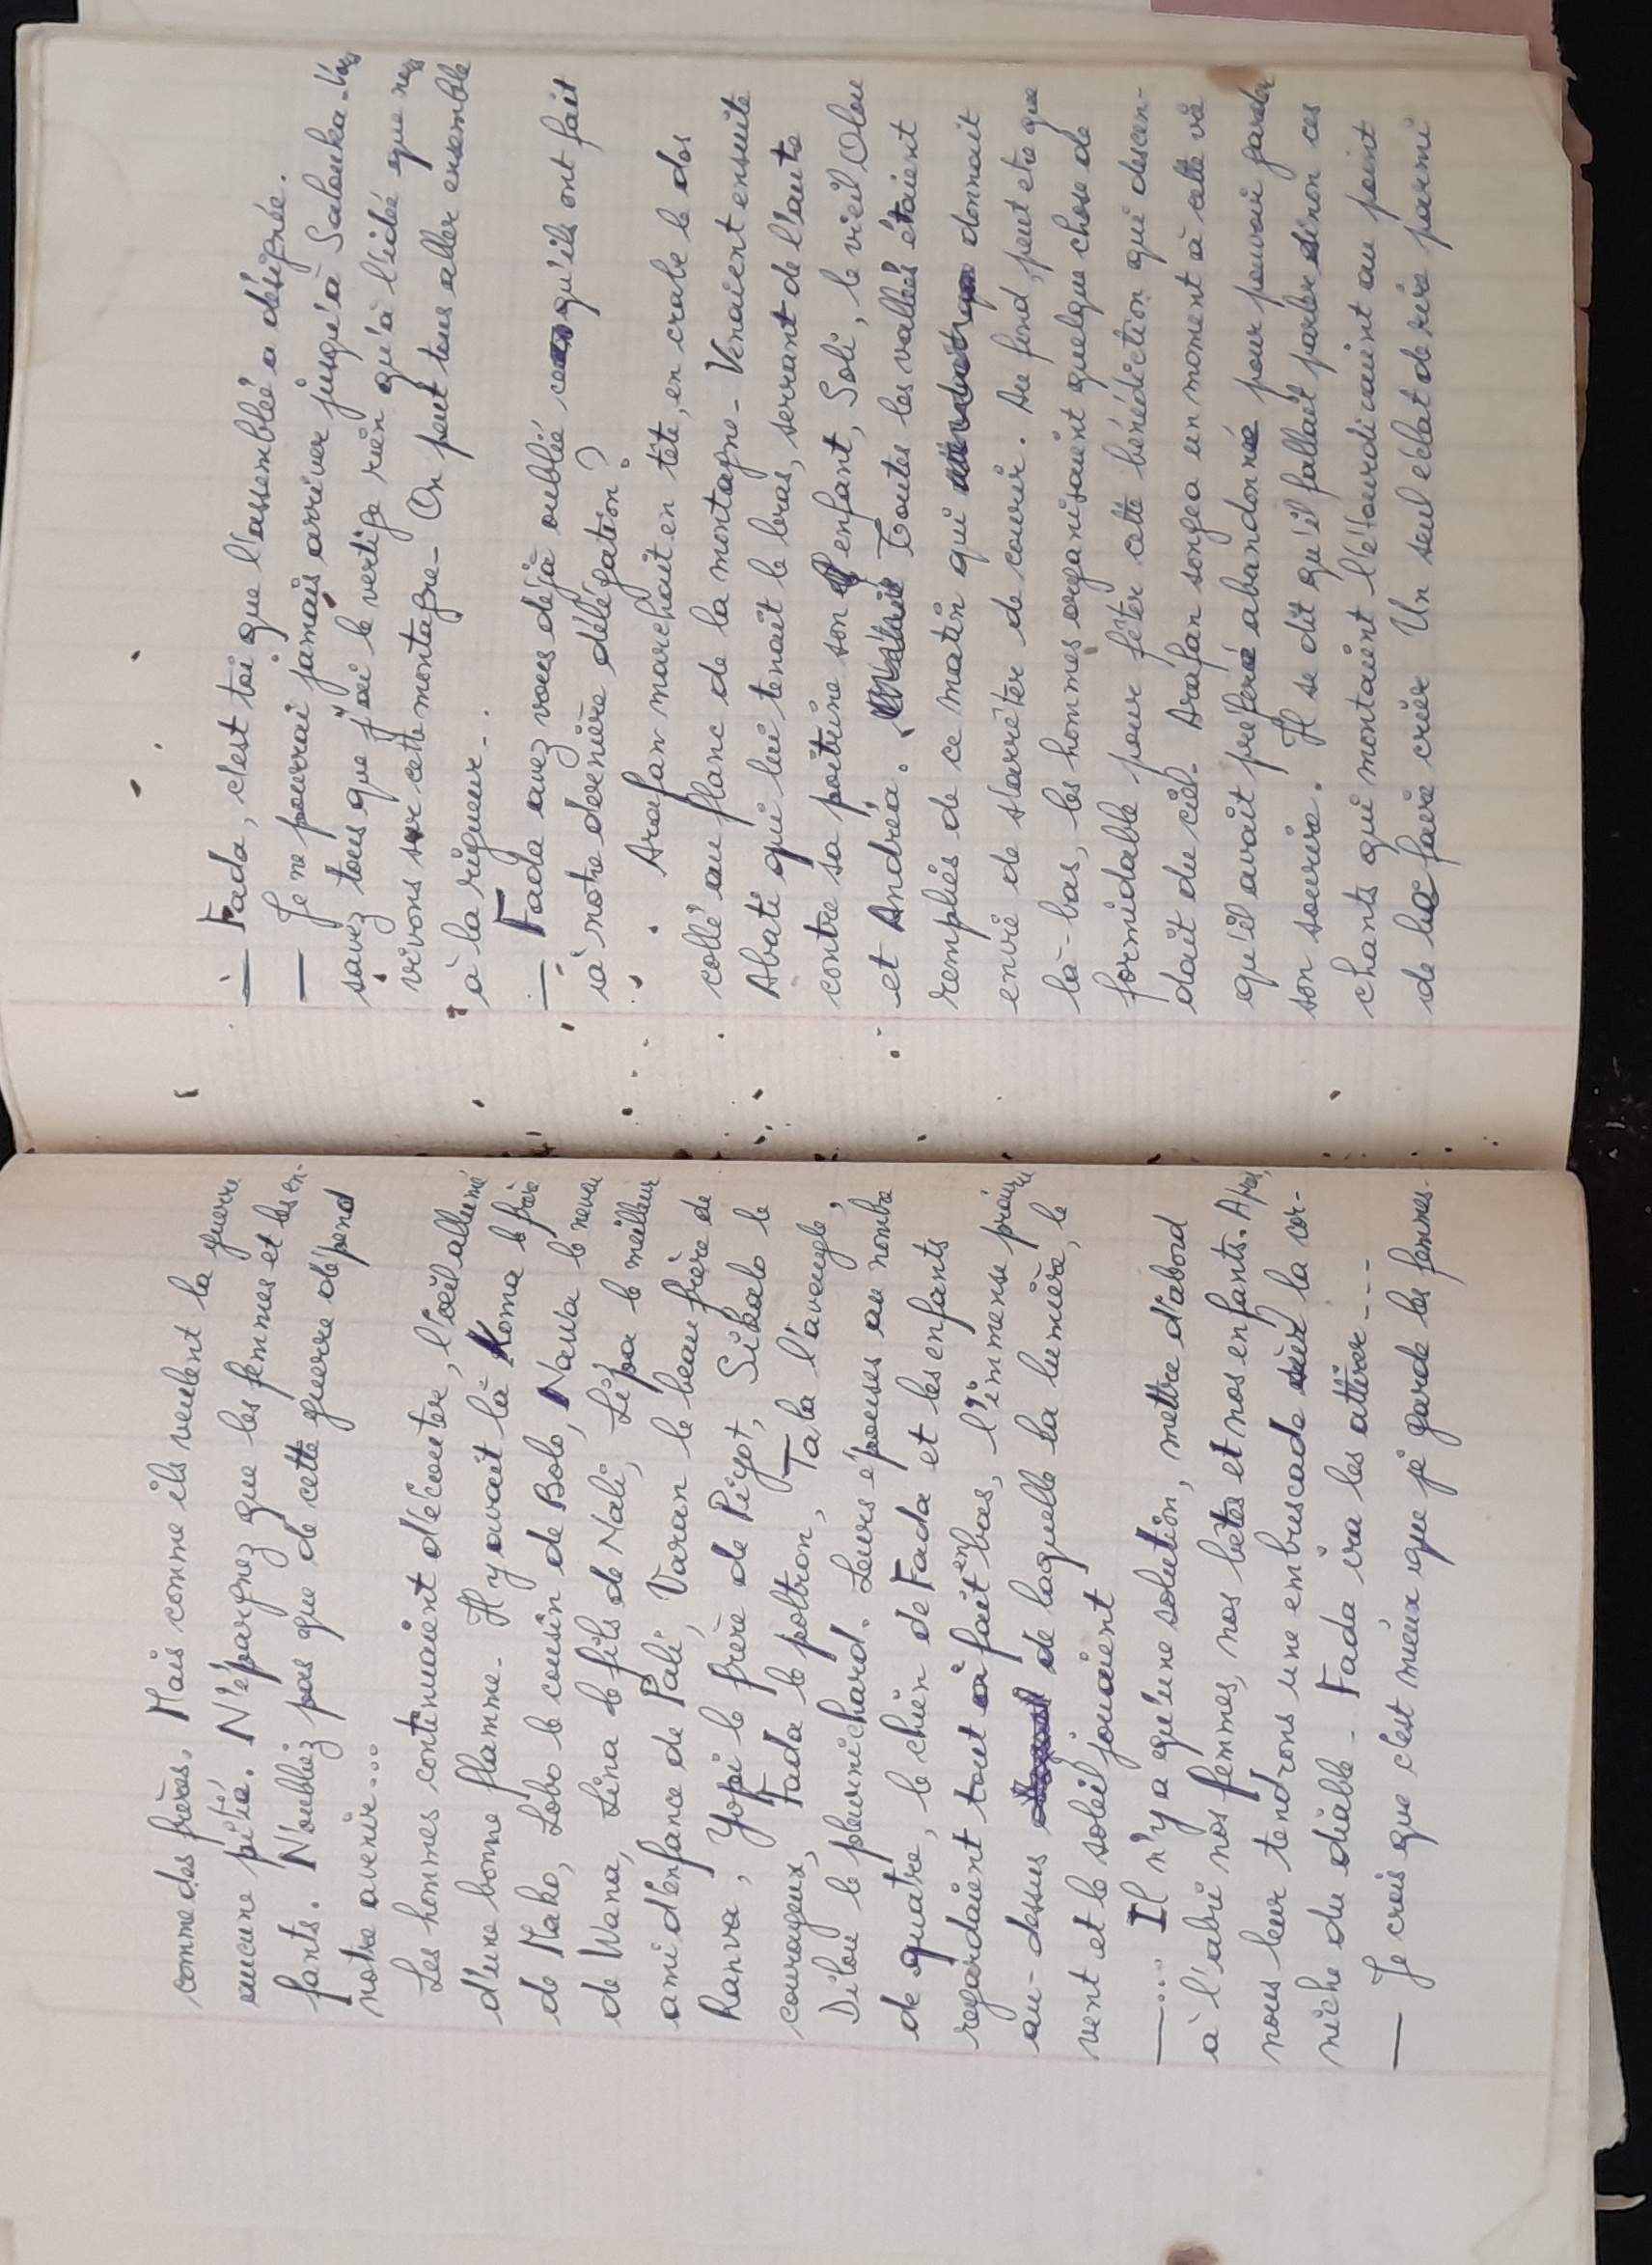 comme des frères. Mais comme ils veulent la guerre
aucune pitié. N'épargnez que les femmes et les en-
fants. N'oubliez pas que de cette guerre dépend
notre avenir...
Les hommes continuaient d'écouter, l'œil allumé
d'une bonne flamme. Il y avait là Koma le frère
de Mako, Lobo le cousin de Bolo, Nawa le neveu
de Wana, Lina le fils de Mali, Lépa le meilleur
ami d'enfance de Pali, Varan le beau frère de
Ranva, Yopi le frère de Piyot, Sikalo le
courageux, Fada le poltron, Taba l'aveugle,
Dilou le pleurnichard. Leurs épouses au nombre
de quatre, le chien de Fada et les enfants
regardaient tout à fait en bas, l'immense prairie
au-dessus de laquelle la lumière, le
vent et le soleil jouaient
—... Il n'y a qu'une solution, mettre d'abord
à l'abri nos femmes, nos bêtes et nos enfants. Après,
nous leur tendrons une embuscade sur la cor-
niche du diable. Fada ira les attirer...
— Je crois que c'est mieux que je garde les femmes.
— Fada, c'est toi que l'assemblée a désignée.
— Je ne pourrai jamais arriver jusqu'à Salouka. Vous
savez tous que j'ai le vertige rien qu'à l'idée que nous
vivons sur cette montagne. On peut tous aller ensemble
à la rigueur...
— Fada avez vous déjà oublié ce qu'ils ont fait
à notre dernière délégation?
Arafan marchait en tête, en crabe le dos
collé au flanc de la montagne. Venaient ensuite
Abati qui lui tenait le bras, serrant de l'autre
contre sa poitrine son enfant, Soli, le vieil Olou
et Andréa. Toutes les vallées étaient
remplies de ce matin qui donnait
envie de s'arrêter de courir. Au fond, peut etre que
là-bas, les hommes organisaient quelque chose de
formidable pour fêter cette bénédiction qui descen-
dait du ciel. Arafan songea un moment à cette vie
qu'il avait préféré abandonné pour pouvoir garder
son sourire. Il se dit qu'il fallait parler sinon ces
chants qui montaient l'étourdiraient au point
de le faire crier. Un seul éclat de rire parmi